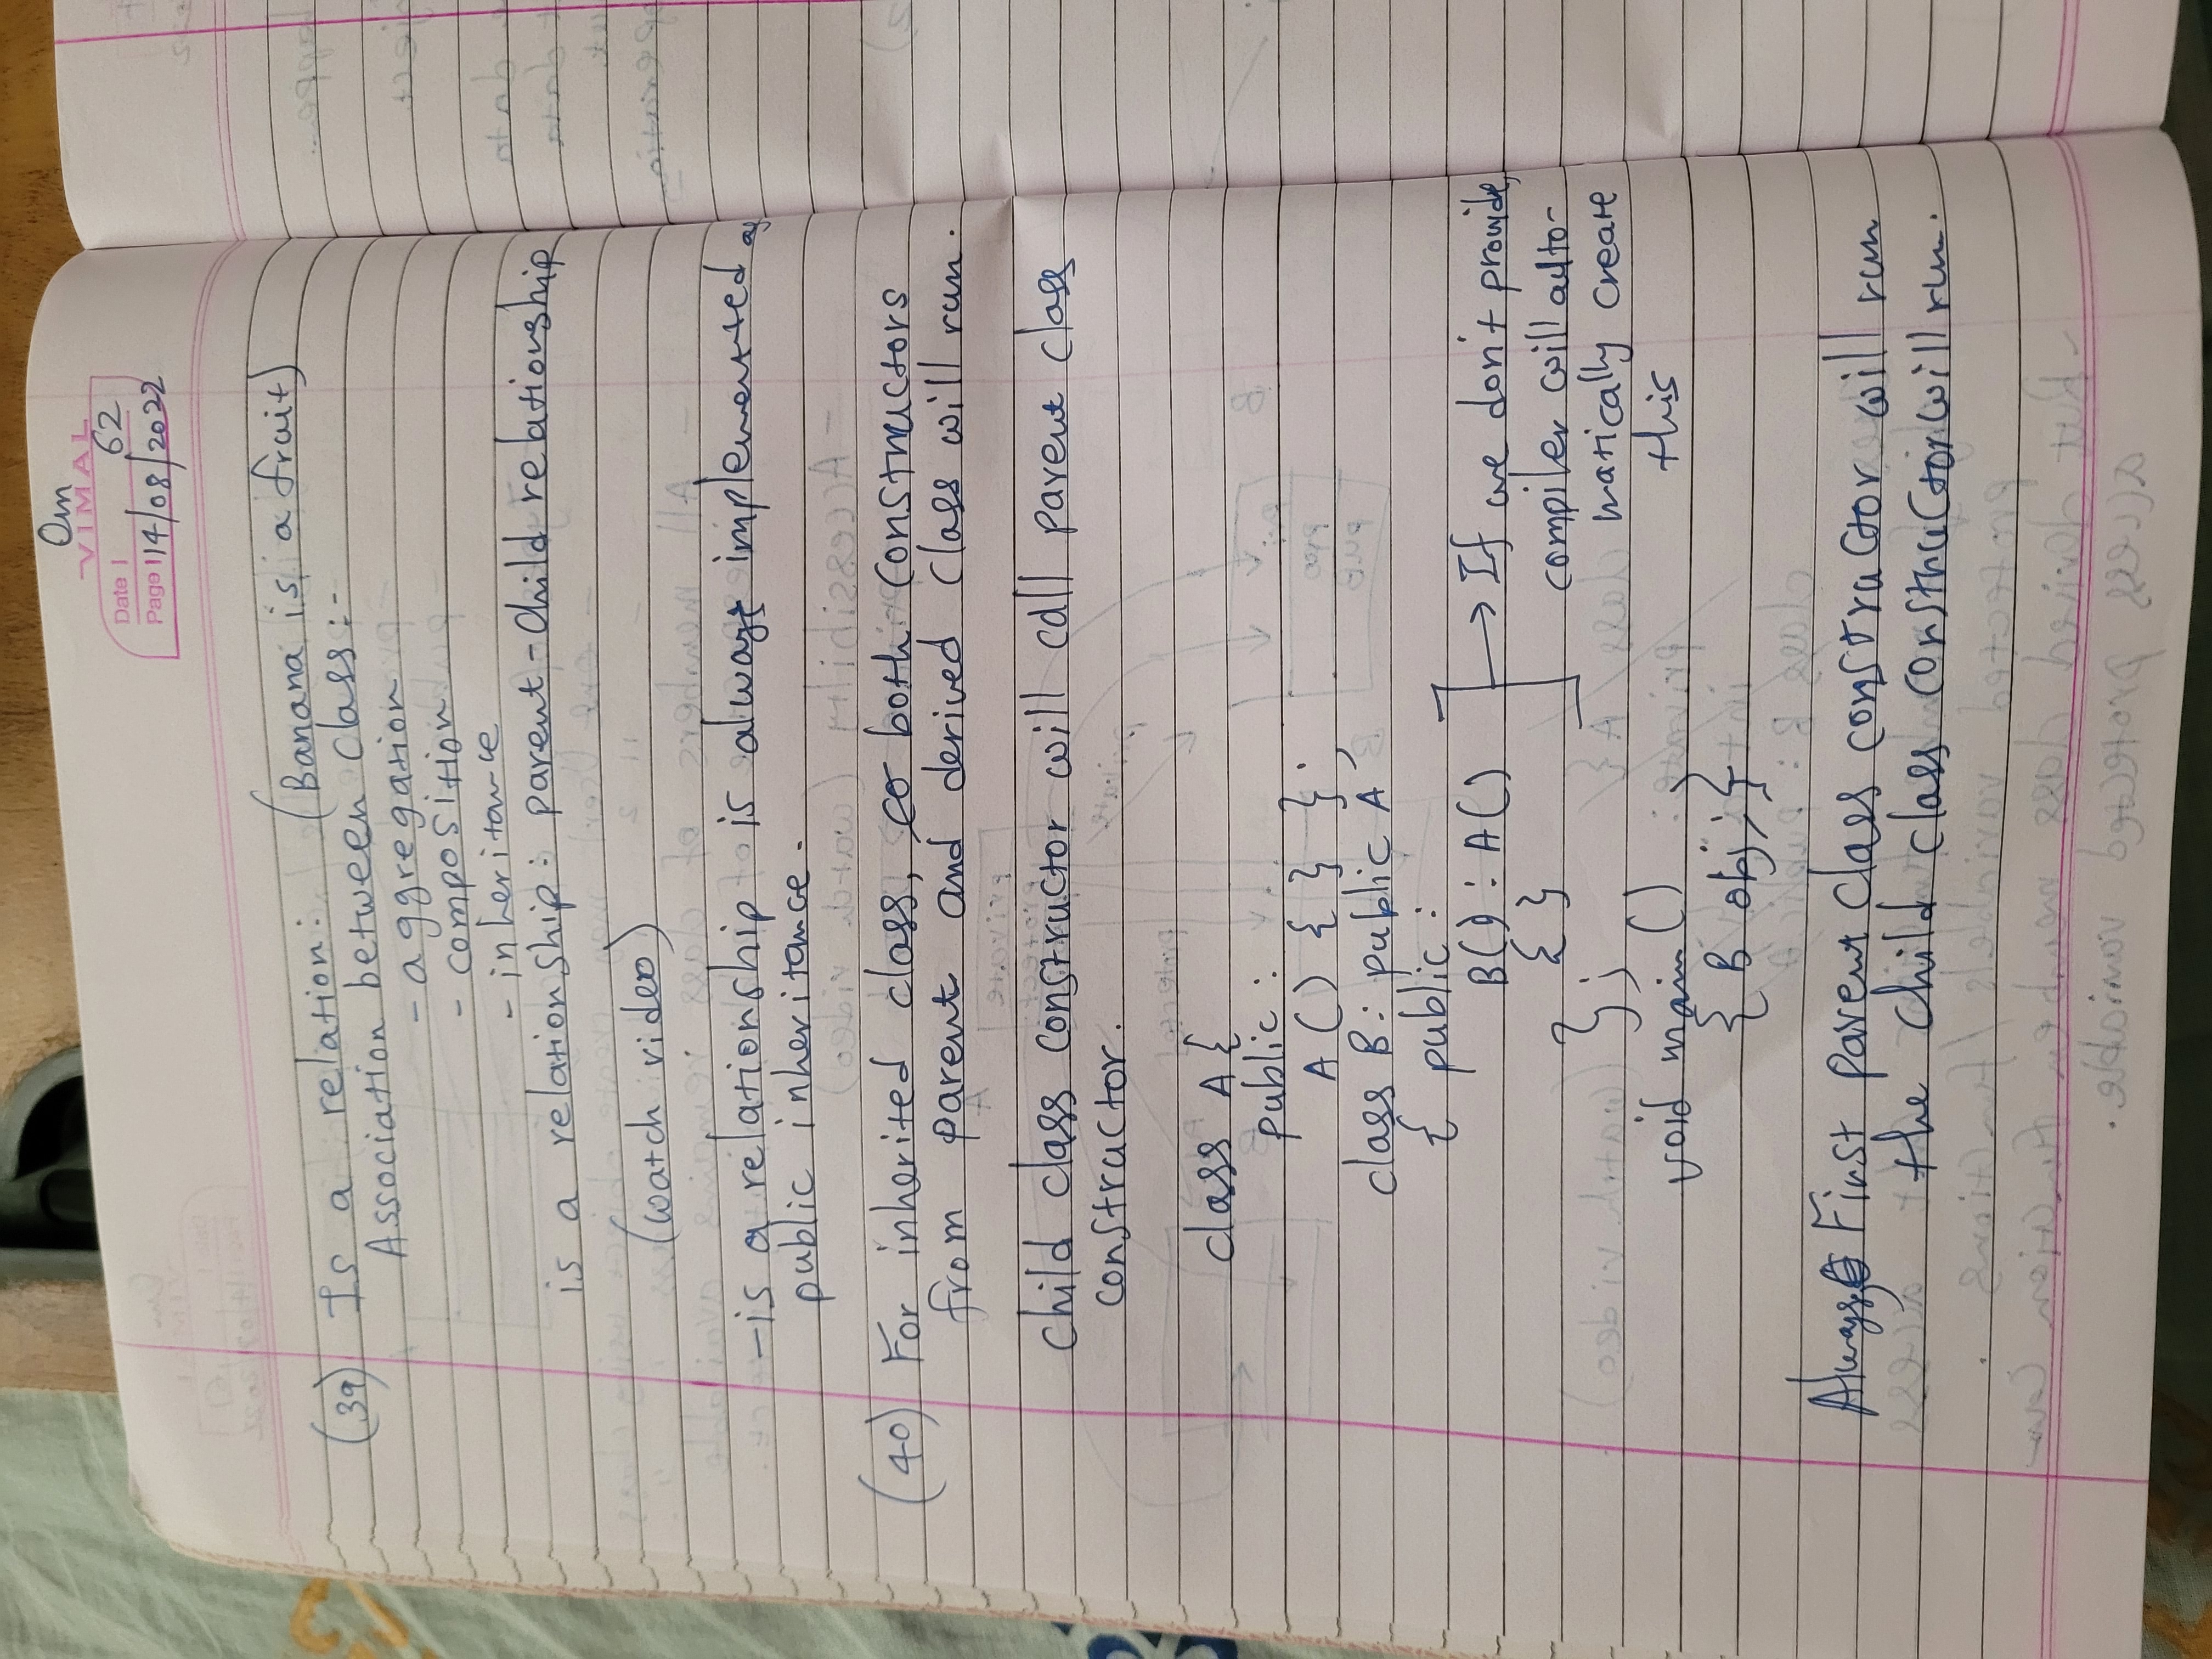 Om
VIMAL
Date | 62
Page | 14/08/2022
(39) Is a relation: (Banana is a fruit)
Association between class:-
- aggregation
- composition
- inheritance
is a relationship: parent-child relationship
(watch video)
-is a relationship is always implemented as
public inheritance.
(40) For inherited class, co both constructors
from parent and derived class will run.
child class constructor will call parent class
constructor.
class A{
public:
A() { } };
class B: public A
{ public:
B() : A() → If we don't provide,
{ } compiler will auto-
}; matically create
void main() this
{ B obj; }
Always First parent class constructor will run
the child class constructor will run.